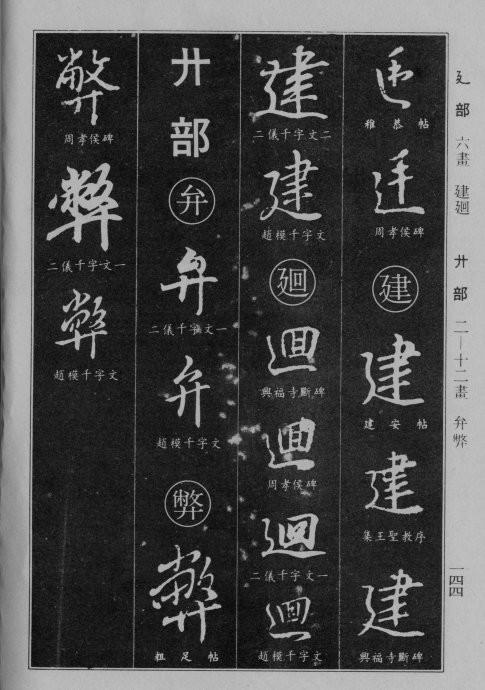 廴部 六畫 建廻 廾部 二—十二畫 弁弊
一四四
稚恭帖
周孝侯碑
建
建
建安帖
建
集王聖教序
建
興福寺斷碑
建
二儀千字文二
建
趙模千字文
廻
廻
興福寺斷碑
廻
周孝侯碑
廻
二儀千字文一
廻
趙模千字文
廾部
弁
弁
二儀千字文一
弁
趙模千字文
弊
弊
粗足帖
弊
周孝侯碑
弊
二儀千字文一
弊
趙模千字文